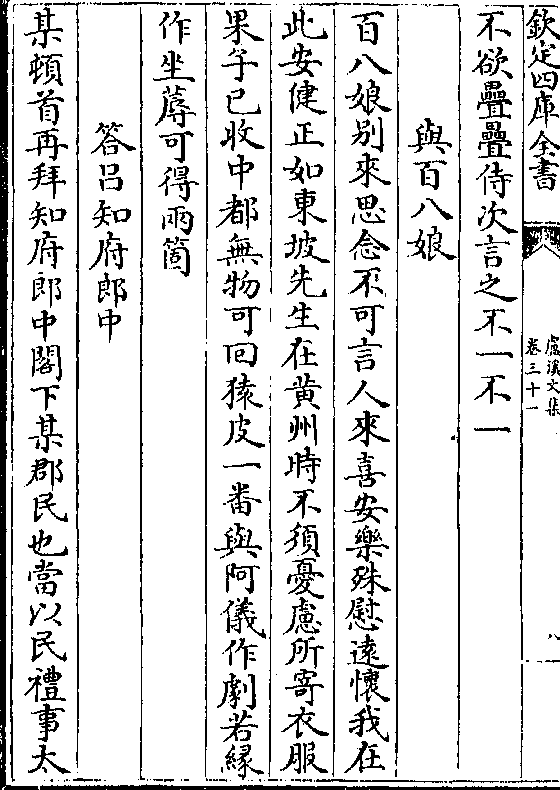 欽定四庫全書
盧溪文集
卷三十一
八
不欲疊疊侍次言之不一不一
與百八娘
百八娘别來思念不可言人來喜安樂殊慰逺懷我在
此安健正如東坡先生在黄州時不須憂慮所寄衣服
果字已收中都無物可回猿皮一番與阿儀作劇若緣
作坐蓐可得兩箇
答吕知府郎中
某頓首再拜知府郎中閣下某郡民也當以民禮事太